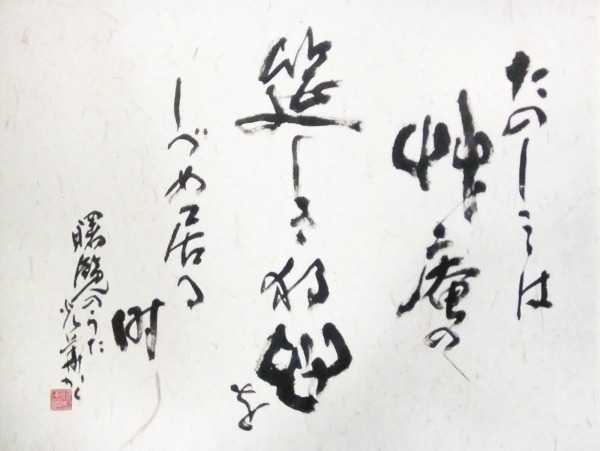 たのしミは
艸庵の
筵しき独心を
しづめ居る
時
曙覧のうた
かく